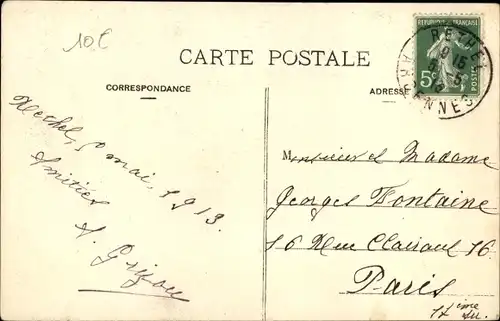 10€
CARTE POSTALE
CORRESPONDANCE
ADRESSE
REPUBLIQUE FRANÇAISE
5c
POSTES
RETHEL
ARDENNES
Rethel, 5 mai, 1913.
Amitiés
Monsieur et Madame
Georges Fontaine
16 Rue Clairaut 16
Paris
17ème